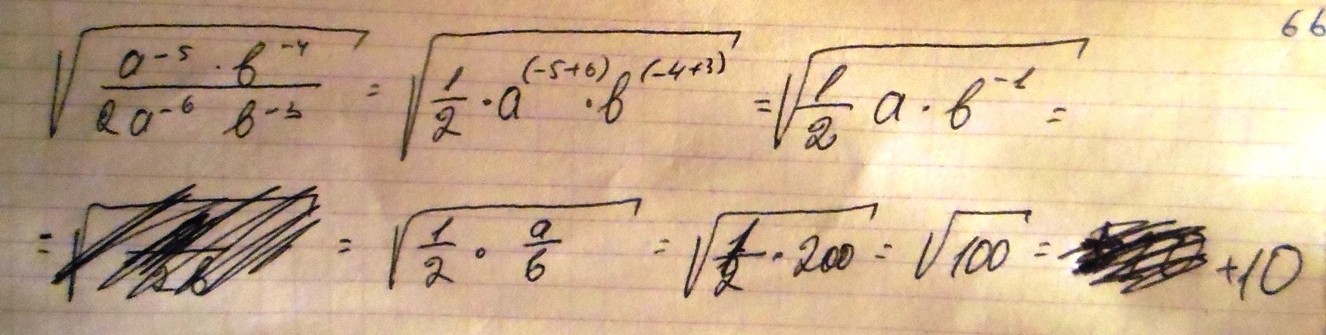 66
√(a⁻⁵ · b⁻⁴ / 2a⁻⁶ b⁻³) = √(1/2 · a⁽⁻⁵⁺⁶⁾ · b⁽⁻⁴⁺³⁾) = √(1/2 a · b⁻¹) =
= = √(1/2 · a/b) = √(1/2 · 200) = √100 = +10